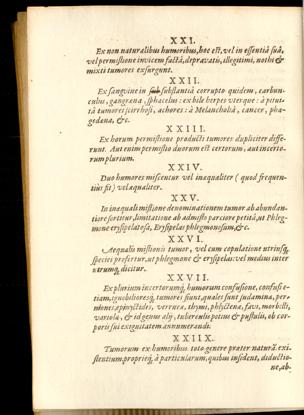 XXI.
Ex non naturalibus humoribus, hoc est, vel in essentiâ suâ,
vel permistione invicem factâ, depravatis, illegitimi, nothi &
mixti tumores exsurgunt.
XXII.
Ex sanguine in substantiâ corrupto quidem, carbun-
culus, gangræna, sphacelus: ex bile herpes uterque: à pitui-
tâ tumores scirrhosi, achores: à Melancholiâ, cancer, phag-
gedæna, &c.
XXIII.
Ex horum permistione producti tumores dupliciter diffe-
runt. Aut enim permistio duorum est certorum, aut incerto-
rum plurium.
XXIV.
Duo humores miscentur vel inæqualiter (quod frequen-
tius fit) vel æqualiter.
XXV.
In inæquali mistione denominationem tumor ab abundan-
tiore sortitur, limitatione ab admisto parciore petitâ, ut Phleg-
mone erysipelatosa, Erysipelas phlegmonosum, &c.
XXVI.
Aequalis mistionis tumor, vel cum copulatione utriusq;
speciei profertur, ut phlegmone & erysipelas: vel medius inter
utrumq; dicitur.
XXVII.
Ex plurium incertorumq; humorum confusione, confuse e-
tiam, ignobilioresq; tumores fiunt, quales sunt sudamina, per-
niones, epinyctides, verrucæ, thymi, phlyctænæ, favi, morbilli,
variolæ, & id genus alij, tuberculis potius & pustulis, ob cor-
poris sui exiguitatem annumerandi.
XXIIX.
Tumorum ex humoribus toto genere præter naturā exi-
stentium propriæq; à particularum, quibus insident, diductio-
ne, ab-